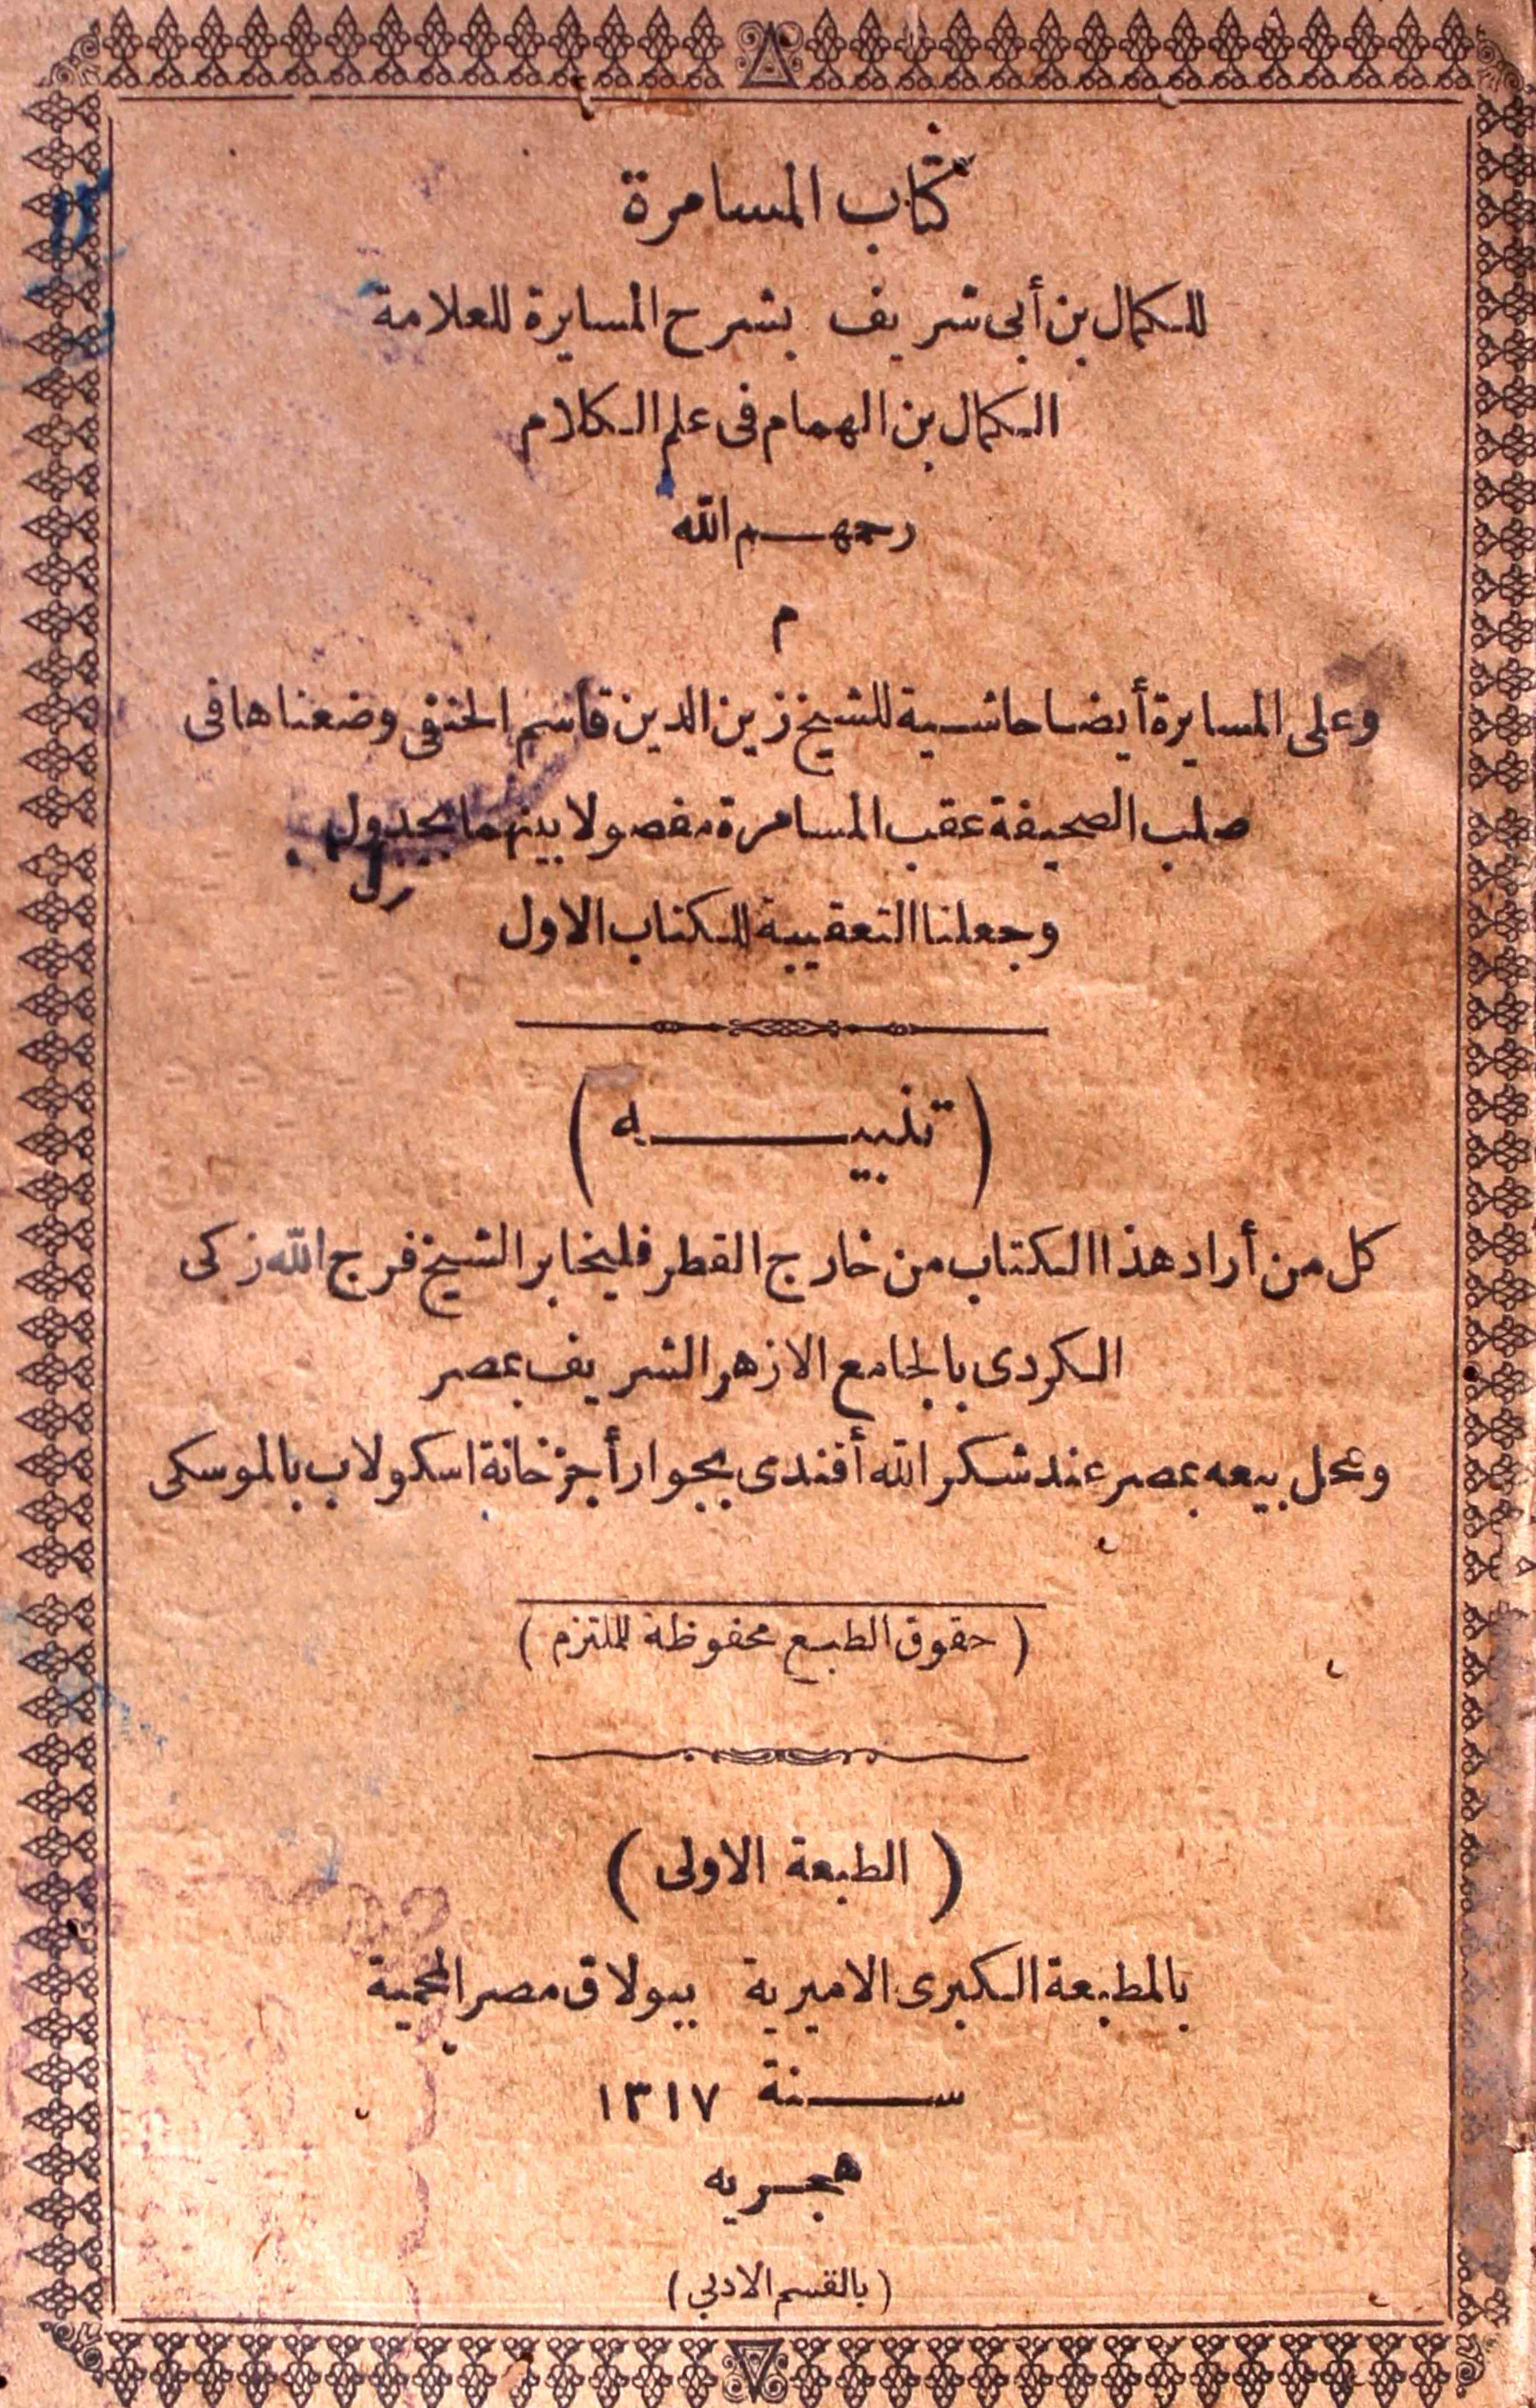 كتاب المسامرة
للكمال بن أبى شريف بشرح المسايرة للعلامة
الكمال بن الهمام فى علم الكلام
رحمهم الله
م
وعلى المسايرة أيضا حاشية للشيخ زين الدين قاسم الحنفى وضعناها فى
صلب الصحيفة عقب المسامرة مفصولا بينهما بجدول
وجعلنا التعقيبة للكتاب الاول
(تنبيه)
كل من أراد هذا الكتاب من خارج القطر فليخابر الشيخ فرج الله زكى
الكردى بالجامع الازهر الشريف بمصر
ومحل بيعه بمصر عند شكر الله أفندى بجوار أجزخانة اسكولاب بالموسكى
(حقوق الطبع محفوظة للملتزم)
(الطبعة الاولى)
بالمطبعة الكبرى الاميرية ببولاق مصر المحمية
سنة ١٣١٧
هجريه
(بالقسم الادبى)